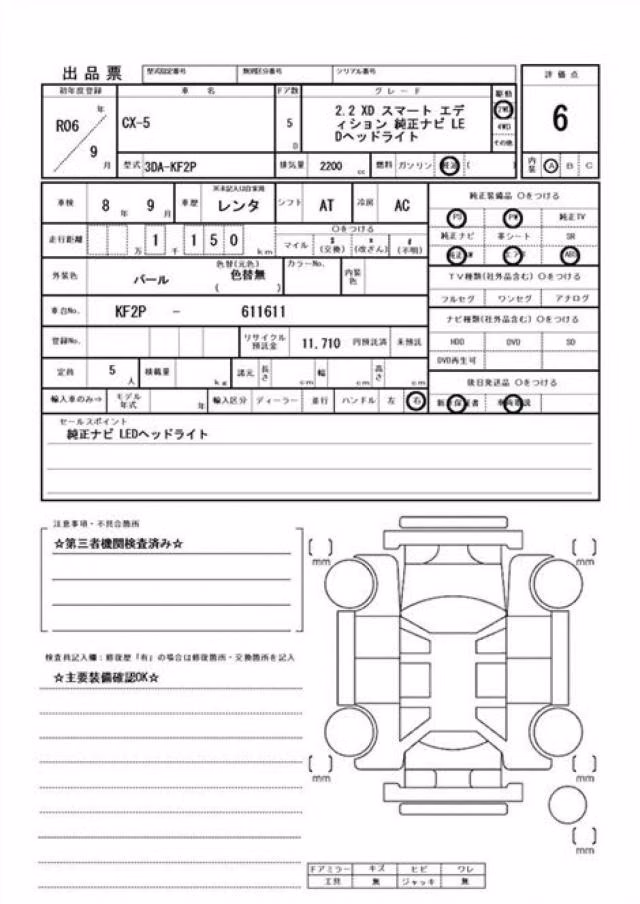 出品票 型式指定番号 類別区分番号 シリアル番号
初年度登録 車名 ドア数 グレード 駆動 評価点
R06 年 9 月
CX-5
5 D
2.2 XD スマート エデ
ィション 純正ナビ LE
Dヘッドライト
2WD
4WD
その他
6
型式 3DA-KF2P 排気量 2200 cc 燃料 ガソリン 軽油 ( )
内装 A B C
車検 8 年 9 月 車歴 ※未記入は自家用 レンタ シフト AT 冷房 AC
純正装備品 ○をつける
PS PW 純正TV
走行距離 万 1 千 1 5 0 km
○をつける
マイル $ (交換) * (改ざん) # (不明)
純正ナビ 革シート SR
純正AW エアB ABS
外装色 パール 色替(元色) 色替無 ( ) カラーNo. 内装色
TV種類(社外品含む) ○をつける
フルセグ ワンセグ アナログ
車台No. KF2P - 611611
ナビ種類(社外品含む) ○をつける
登録No. リサイクル預託金 11,710 円預託済 未預託
HDD DVD SD
DVD再生可
定員 5 人 積載量 kg 諸元 長さ cm 幅 cm 高さ cm
後日発送品 ○をつける
輸入車のみ⇒ モデル年式 年 輸入区分 ディーラー 並行 ハンドル 左 右
新車保証書
セールスポイント
純正ナビ LEDヘッドライト
注意事項・不具合箇所
☆第三者機関検査済み☆
mm mm
検査員記入欄:修復歴「有」の場合は修復箇所・交換箇所を記入
☆主要装備確認OK☆
mm mm
mm
ドアミラー キズ ヒビ ワレ
工具 無 ジャッキ 無